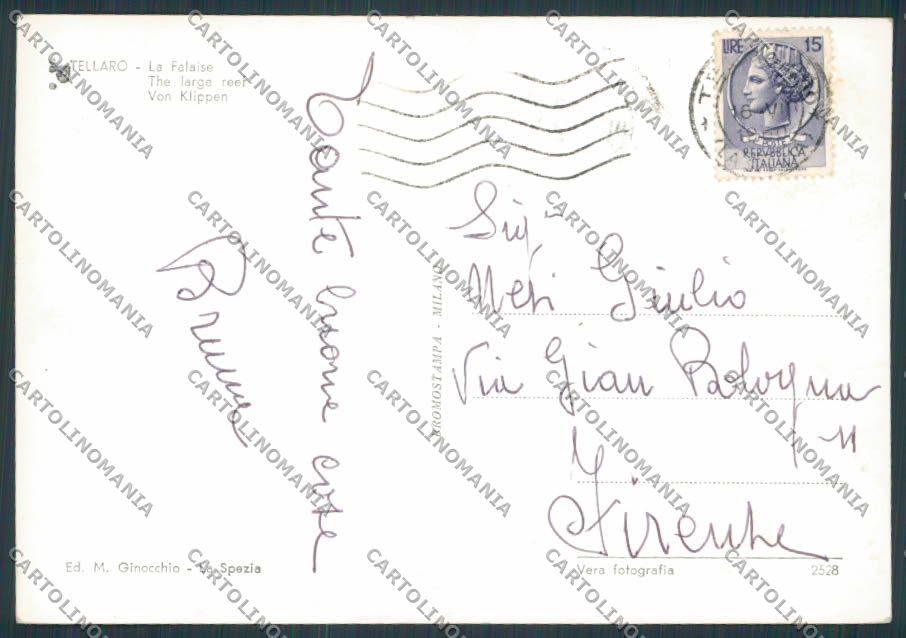 TELLARO - La Falaise
The large reef
Von Klippen
Tante buone cose
Bruna
BROMOSTAMPA - MILANO
LIRE 15
POSTE
REPVBBLICA
ITALIANA
Sig.
Nesi Giulio
Via Gian Bologna
11
Firenze
Ed. M. Ginocchio - La Spezia
Vera fotografia
2528
CARTOLINOMANIA